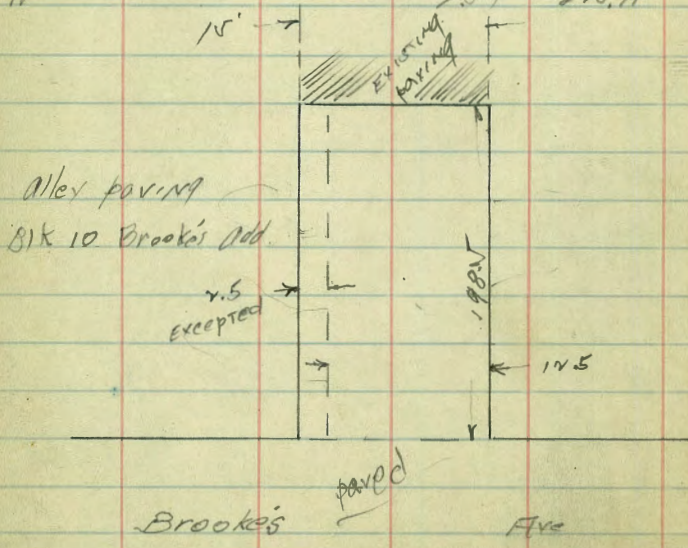 15'
Existing
paving
Alley paving
Blk 10 Brooke's Add.
2.5
Excepted
198.5
12.5
paved
Brooke's Ave